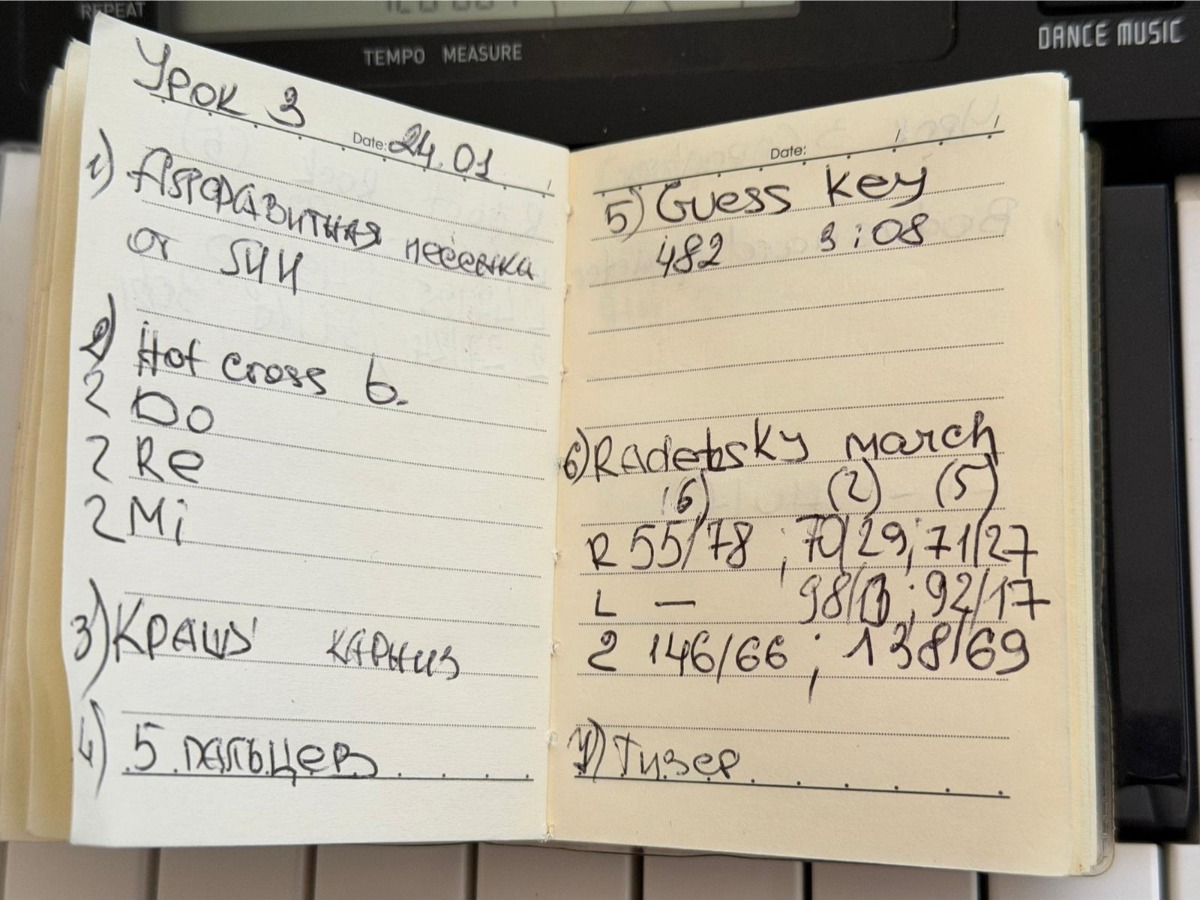 REPEAT
TEMPO MEASURE
DANCE MUSIC
Урок 3
Date: 24.01
1) Алфавитная песенка
от
2) Hot cross b.
2 Do
2 Re
2 Mi
3) Крашу карниз
4) 5 пальцев
Date:
5) Guess key
482 3:08
6) Radetsky march
(6) (2) (5)
R 55/78 ; 70/29; 71/27
L — 98/13 ; 92/17
2 146/66 ; 138/69
7) Тизер